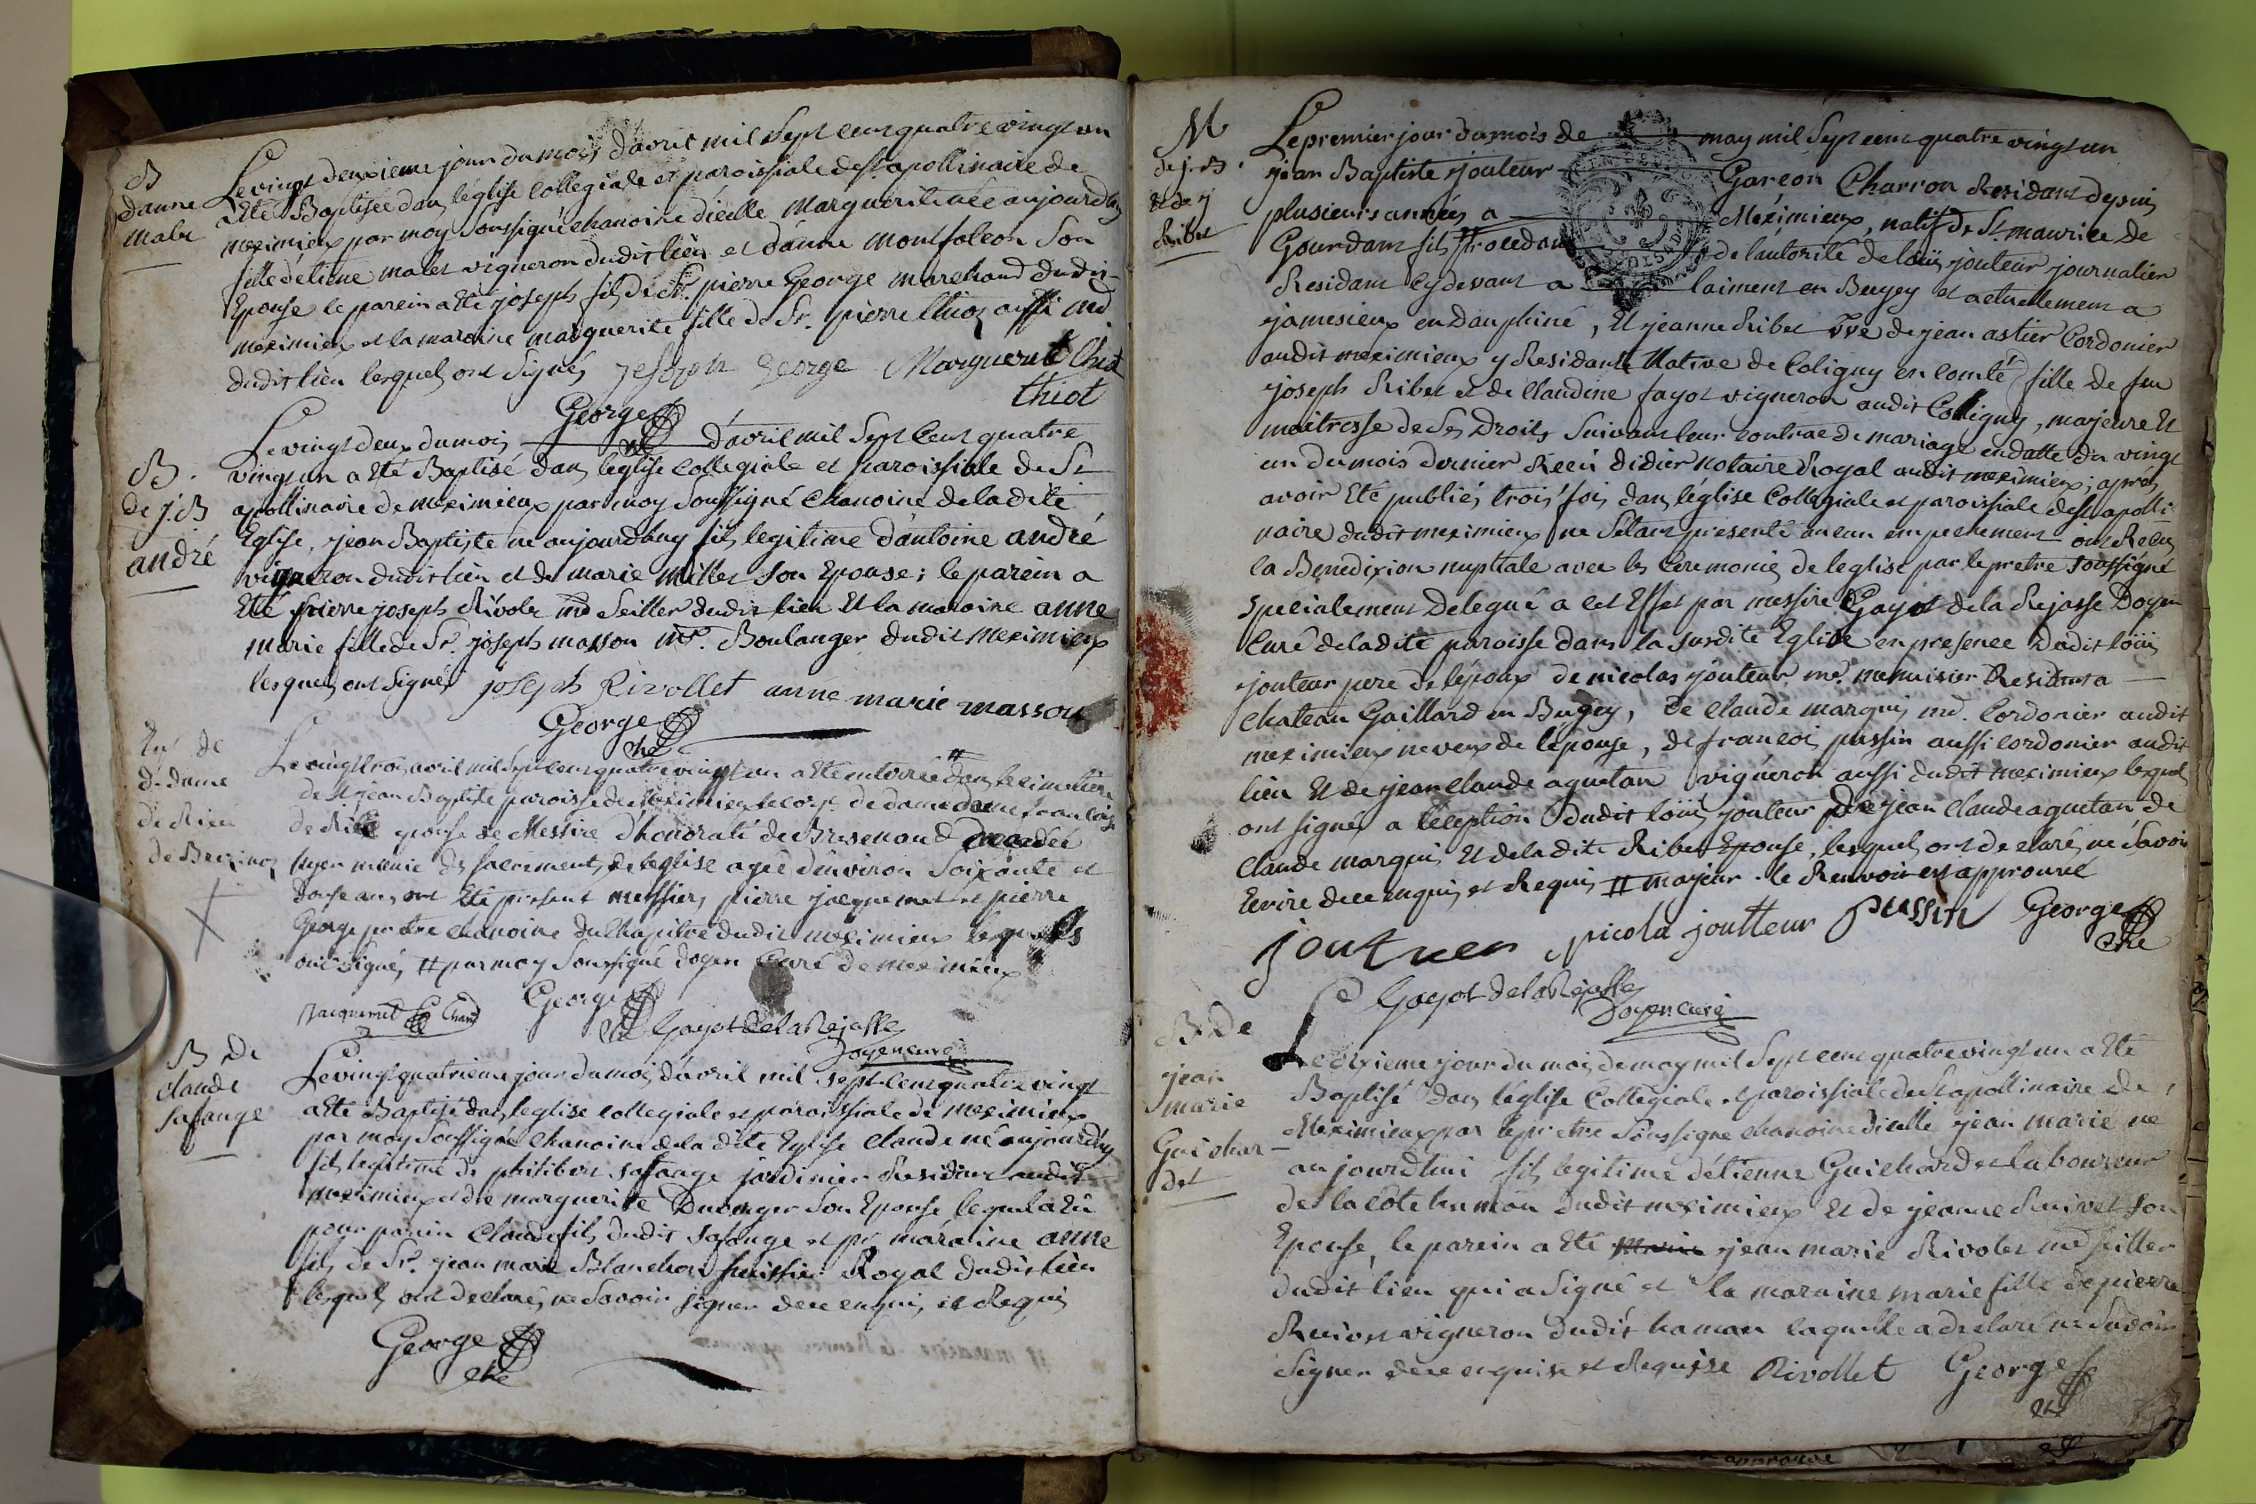 B
d'anne
malet
Le vingt deuxieme jour du mois d'avril mil sept cent quatre vingt un
a Eté Baptisée dans l'église collegiale et paroissiale de St. apollinaire de
meximieux par moy soussigné chanoine d'icelle marguerite née aujourdhuy
fille d'étiene malet vigneron dudit lieu et d'anne montfaleon son
Epouse le parein a Eté joseph fils de Sr. pierre George marchand dudit
meximieux et la maraine marguerite fille de Sr. pierre thiot aussi md
dudit lieu lesquels ont signés joseph george Marguerite thiot
thiot
George
che
B.
de j. B
andré
Le vingt deux du mois d'avril mil sept cent quatre
vingt un a Eté Baptisé dans l'église collegiale et paroissiale de St
apollinaire de meximieux par moy soussigné chanoine de la dite
Eglise, jean Baptiste né aujourdhuy fils legitime d'antoine andré
vigneron dudit lieu et de marie millet son Epouse; le parein a
Eté pierre joseph Rivolet md seillier dudit lieu Et la maraine anne
marie fille de Sr. joseph masson md. Boulanger dudit meximieux
lesquels ont signés joseph Rivollet anne marie masson
George
che
de
d. dame
de Rien
Le vingt trois avril mil sept cent quatre vingt un a Eté enterrée # dans le cimetiere
de St jean Baptiste paroisse de meximieux le corps de dame
epouse de Messire d'honorati de Bresenaud decedée
hyer munie des sacrements de l'eglise agée d'environ soixante et
douse ans, ont Eté présent messires pierre jacquemet et pierre
George prêtre chanoine du chapitre dudit meximieux lesquels
ont signés # par moy soussigné doyen curé de meximieux
Jacquemet Chan George
che Gayot de la Rejasse
Doyen curé
B de
claude
safange
Le vingt quatrieme jour du mois d'avril mil sept cent quatre vingt
a Eté Baptisé dans l'eglise collegiale et paroissiale de meximieux
par moy soussigné chanoine de la dite Eglise claude né aujourdhuy
fils legitime de philibert safange jardinier Residant audit
meximieux et de marguerite son Epouse lequel a Eû
pour parein claude fils dudit safange et pr. maraine anne
fils de Sr. jean marie Blanchon huissier Royal dudit lieu
lesquels ont declarés ne savoir signer de ce enquis et Requis
George
che
M
de j. B.
et de j
Ribet
Le premier jour du mois de may mil sept cent quatre vingt un
jean Baptiste jouteur Garcon Charron Residant depuis
plusieurs années a Meximieux, natif de St. maurice de
Gourdans fils # procedant de l'autorité de loüis jouteur journalier
Residant cy devant a laiment en Bugey et actuellement a
jamesieux en Dauphiné, Et jeanne Ribet vve de jean astier Cordonier
audit meximieux y Residante Native de Coligny en comté fille de feu
joseph Ribet et de claudine fayot vigneron audit Colligny, majeure Et
maitresse de ses Droits suivant leur contrac de mariage en datte du vingt
un du mois dernier Recû Didier notaire Royal audit meximieux; après
avoir Eté publiés trois fois dans l'église collegiale et paroissiale de St. apolli
naire dudit meximieux ne s'etant presenté aucun empechement ont Reçu
la Benedixion nuptiale avec les Ceremonies de l'eglise par le pretre soussigné
specialement delegué a cet Effet par messire Gayot de la Rejasse Doyen
Curé de la dite paroisse dans la susdite Eglise en presence dudit loüis
jouteur pere de l'époux de nicolas jouteur md. menuisier Residant a
chateau Gaillard en Bugey, de claude marquis md. Cordonier audit
meximieux neveux de l'épouse, de francois pussin aussi cordonier audit
lieu Et de jean claude aguetan vigneron aussi dudit meximieux lesquels
ont signés a l'éception dudit loüis jouteur de jean claude aguetan de
claude marquis Et de la dite Ribet Epouse, lesquels ont declaré ne savoir
Ecrire de ce enquis et Requis # majeur le Renvoir est approuvé
nicola joutteur Pussin George
che
Gayot de la Rejasse
Doyen Curé
B. de
jean
marie
Guichar-
det
Le dixieme jour du mois de may mil sept cent quatre vingt un a Eté
Baptisé dans l'église Collegiale et paroissiale de St. apollinaire de
Meximieux par le prêtre soussigné chanoine d'icelle jean marie né
aujourdhui fils legitime d'étienne Guichardet laboureur
de la cote hamau dudit meximieux Et de jeanne Ruivet son
Epouse, le parein a Eté marie jean marie Rivolet md seillier
dudit lieu qui a signé et la maraine marie fille de pierre
Ruivet vigneron dudit hamau laquelle a declaré ne savoir
signer de ce enquise et Requise Rivollet George
che
approuvé